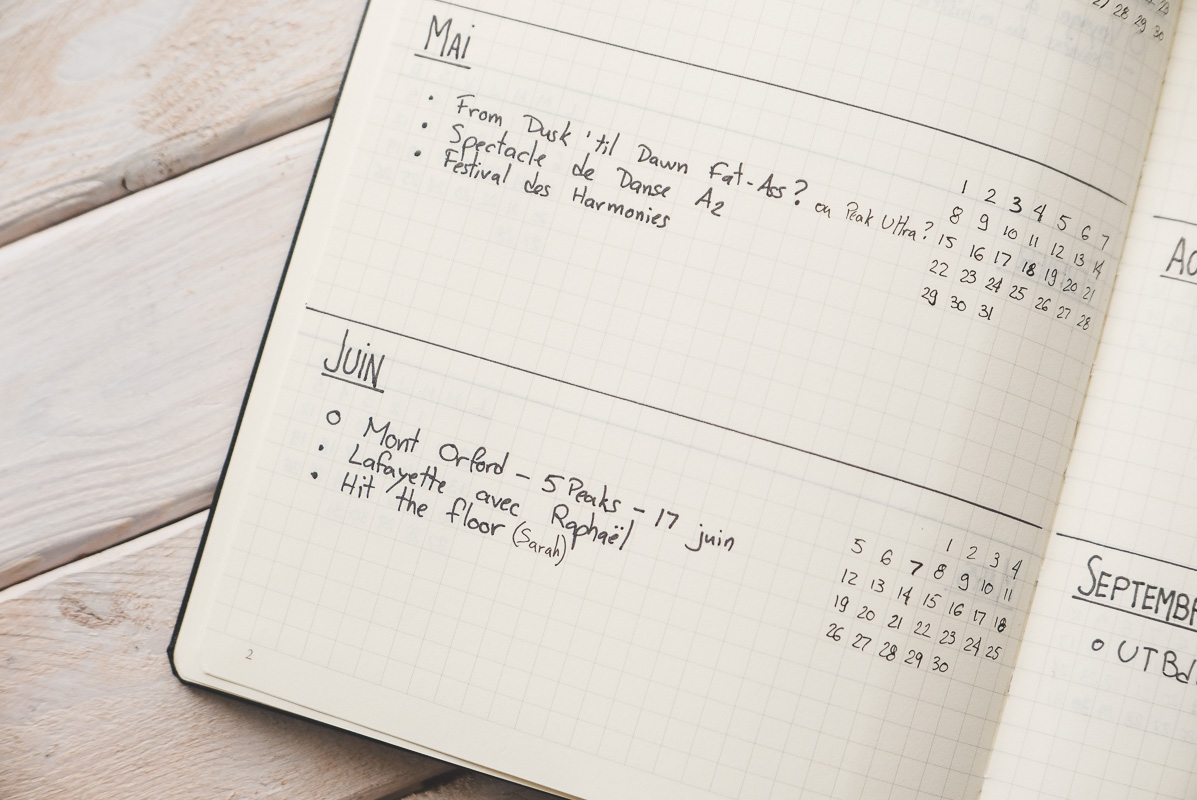 27 28 29 30
MAI
• From Dusk 'til Dawn Fat-Ass? ou Peak Ultra?
• Spectacle de Danse A2
• Festival des Harmonies
1 2 3 4 5 6 7
8 9 10 11 12 13 14
15 16 17 18 19 20 21
22 23 24 25 26 27 28
29 30 31
JUIN
o Mont Orford - 5 Peaks - 17 juin
• Lafayette avec Raphaël
• Hit the floor (Sarah)
1 2 3 4
5 6 7 8 9 10 11
12 13 14 15 16 17 18
19 20 21 22 23 24 25
26 27 28 29 30
2
SEPTEMBR
o UTBd